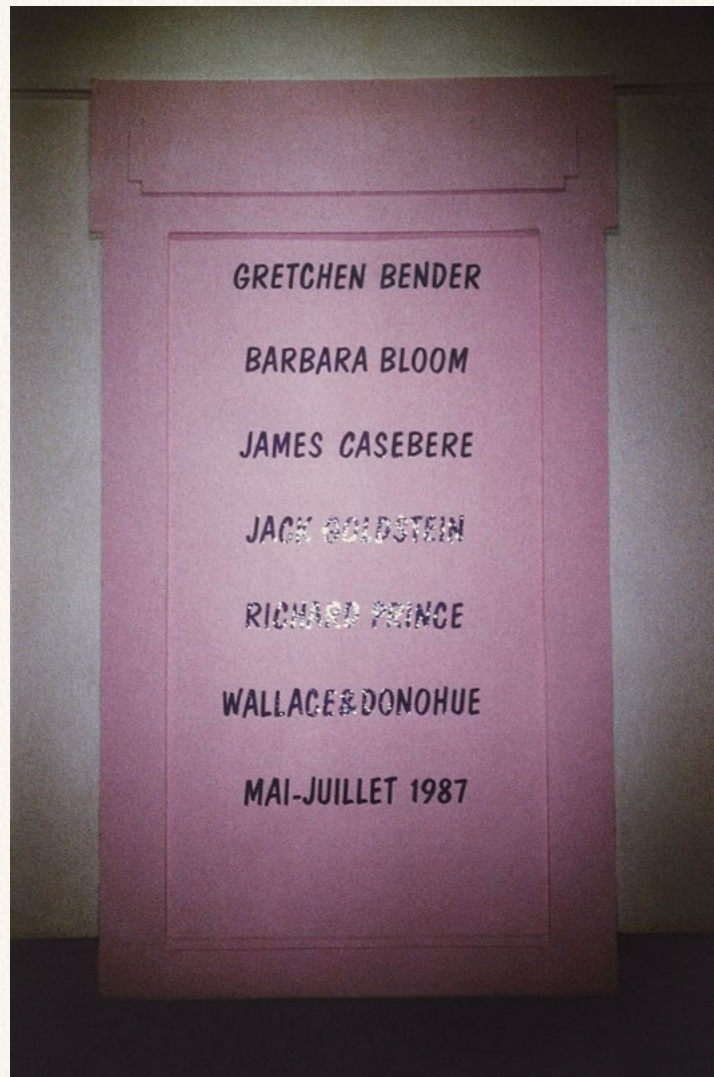 GRETCHEN BENDER
BARBARA BLOOM
JAMES CASEBERE
JACK GOLDSTEIN
RICHARD PRINCE
WALLACE&DONOHUE
MAI-JUILLET 1987